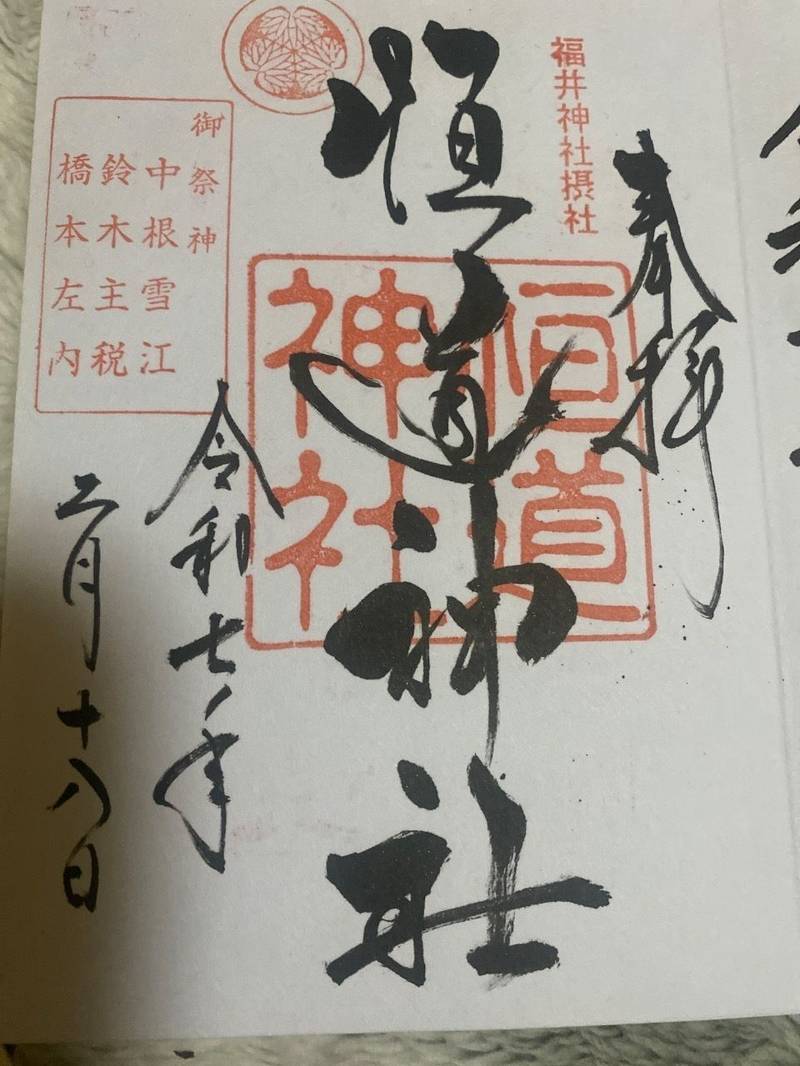 奉拝
福井神社摂社
恒道神社
恒道
神社
令和七年
二月十八日
御祭神
中根雪江
鈴木主税
橋本左内